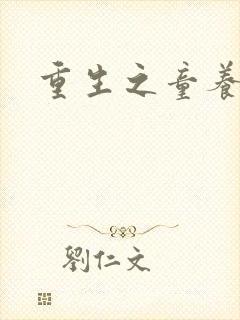 重生之童養
劉仁文